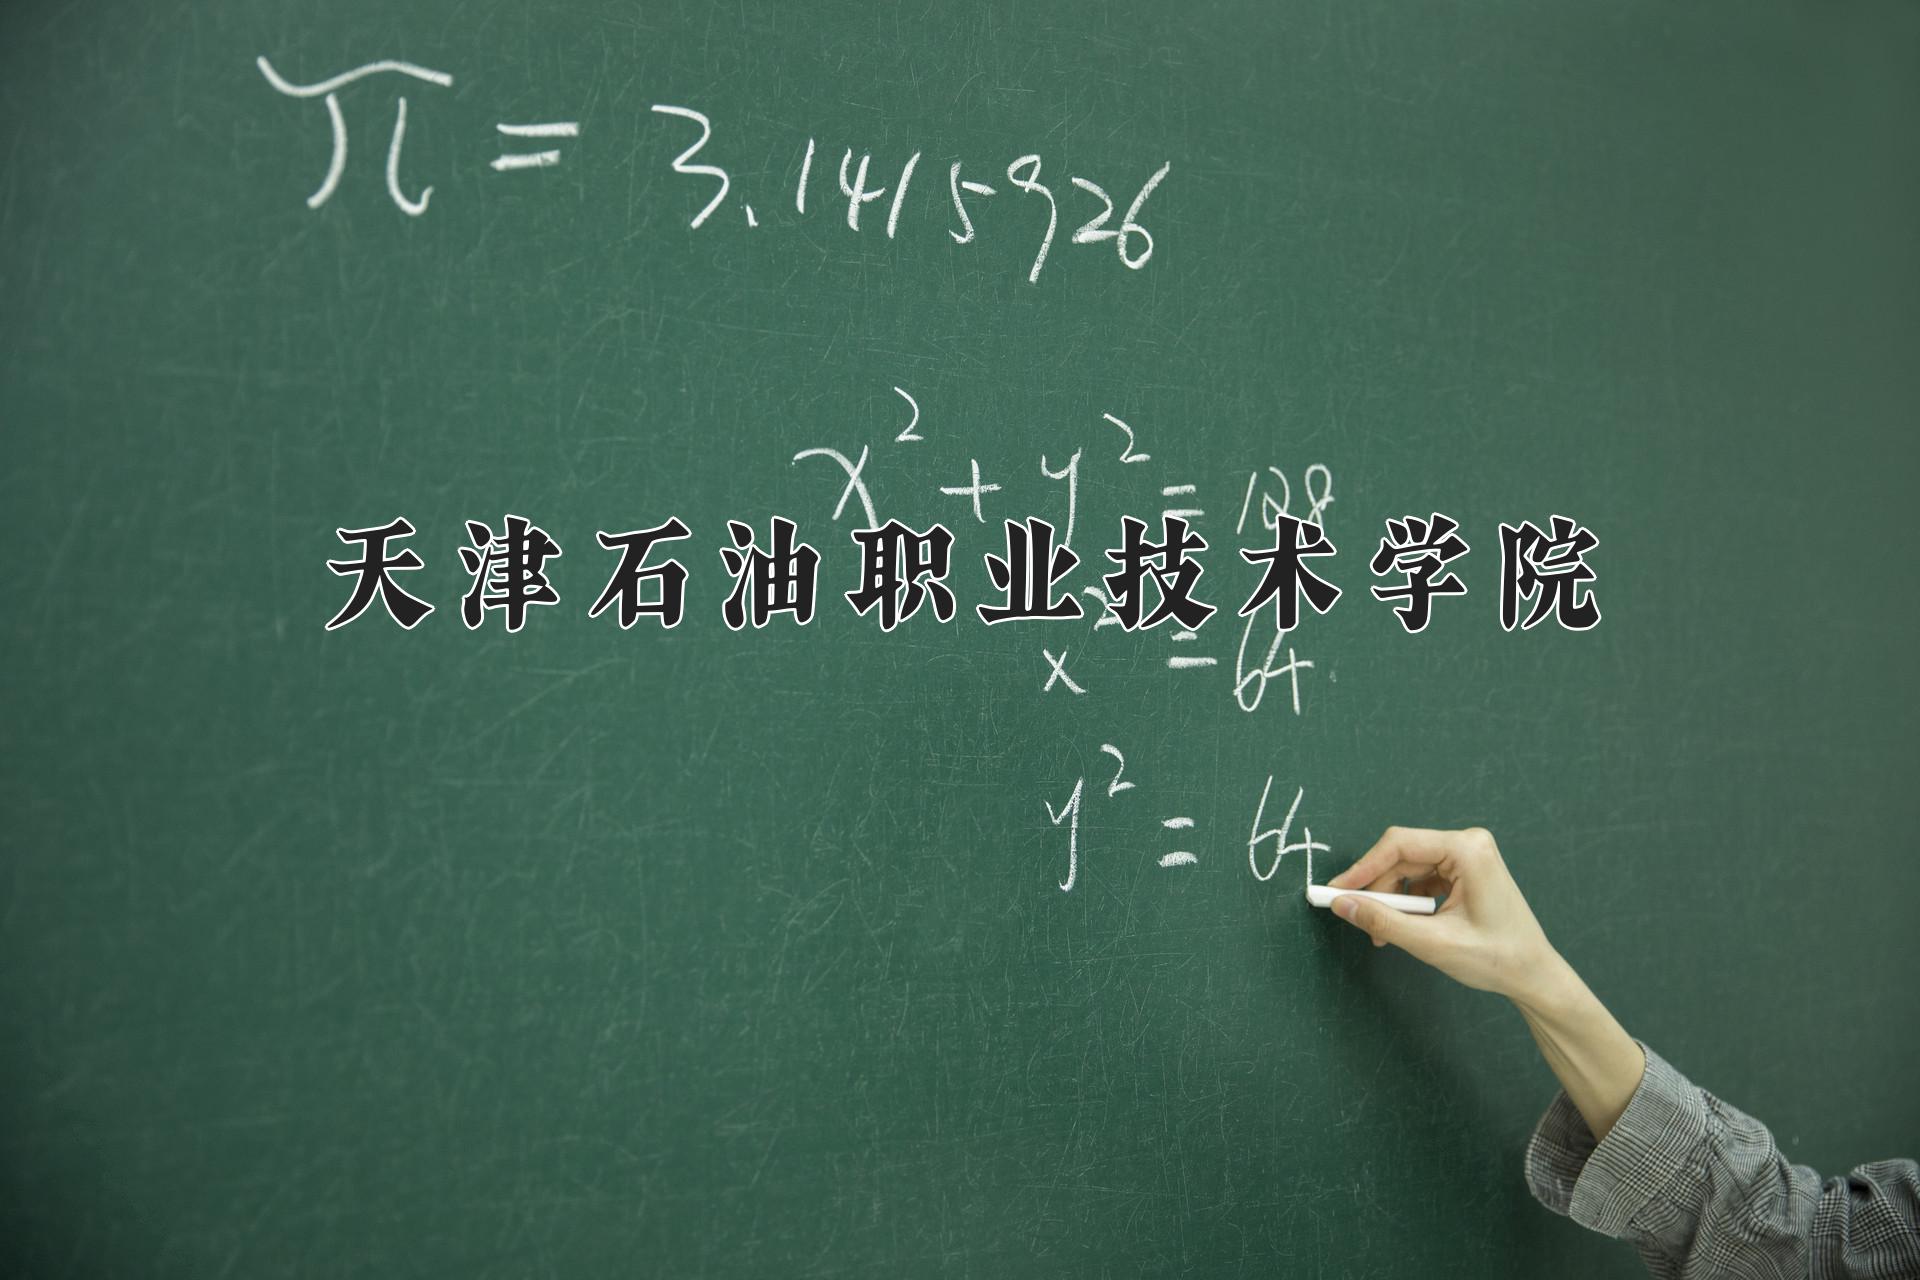 π = 3.1415926
x² + y² = 128
天津石油职业技术学院
x² = 64
y² = 64